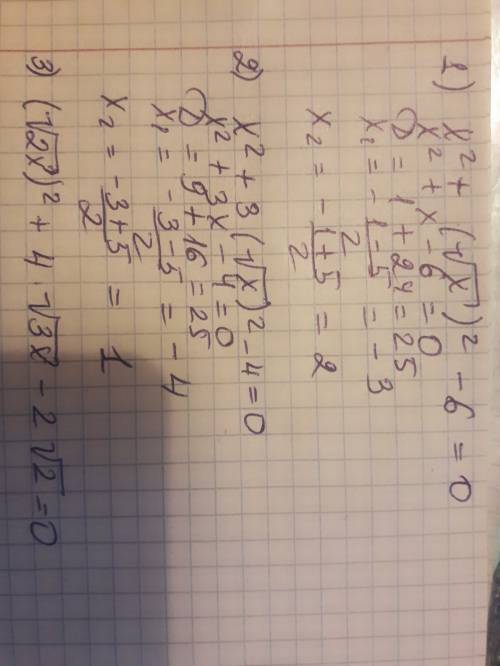 1) x² + (√x)² - 6 = 0
x² + x - 6 = 0
D = 1 + 24 = 25
x₁ = (-1-5)/2 = -3
x₂ = (-1+5)/2 = 2
2) x² + 3(√x)² - 4 = 0
x² + 3x - 4 = 0
D = 9 + 16 = 25
x₁ = (-3-5)/2 = -4
x₂ = (-3+5)/2 = 1
3) (√2x)² + 4·√3x - 2√2 = 0